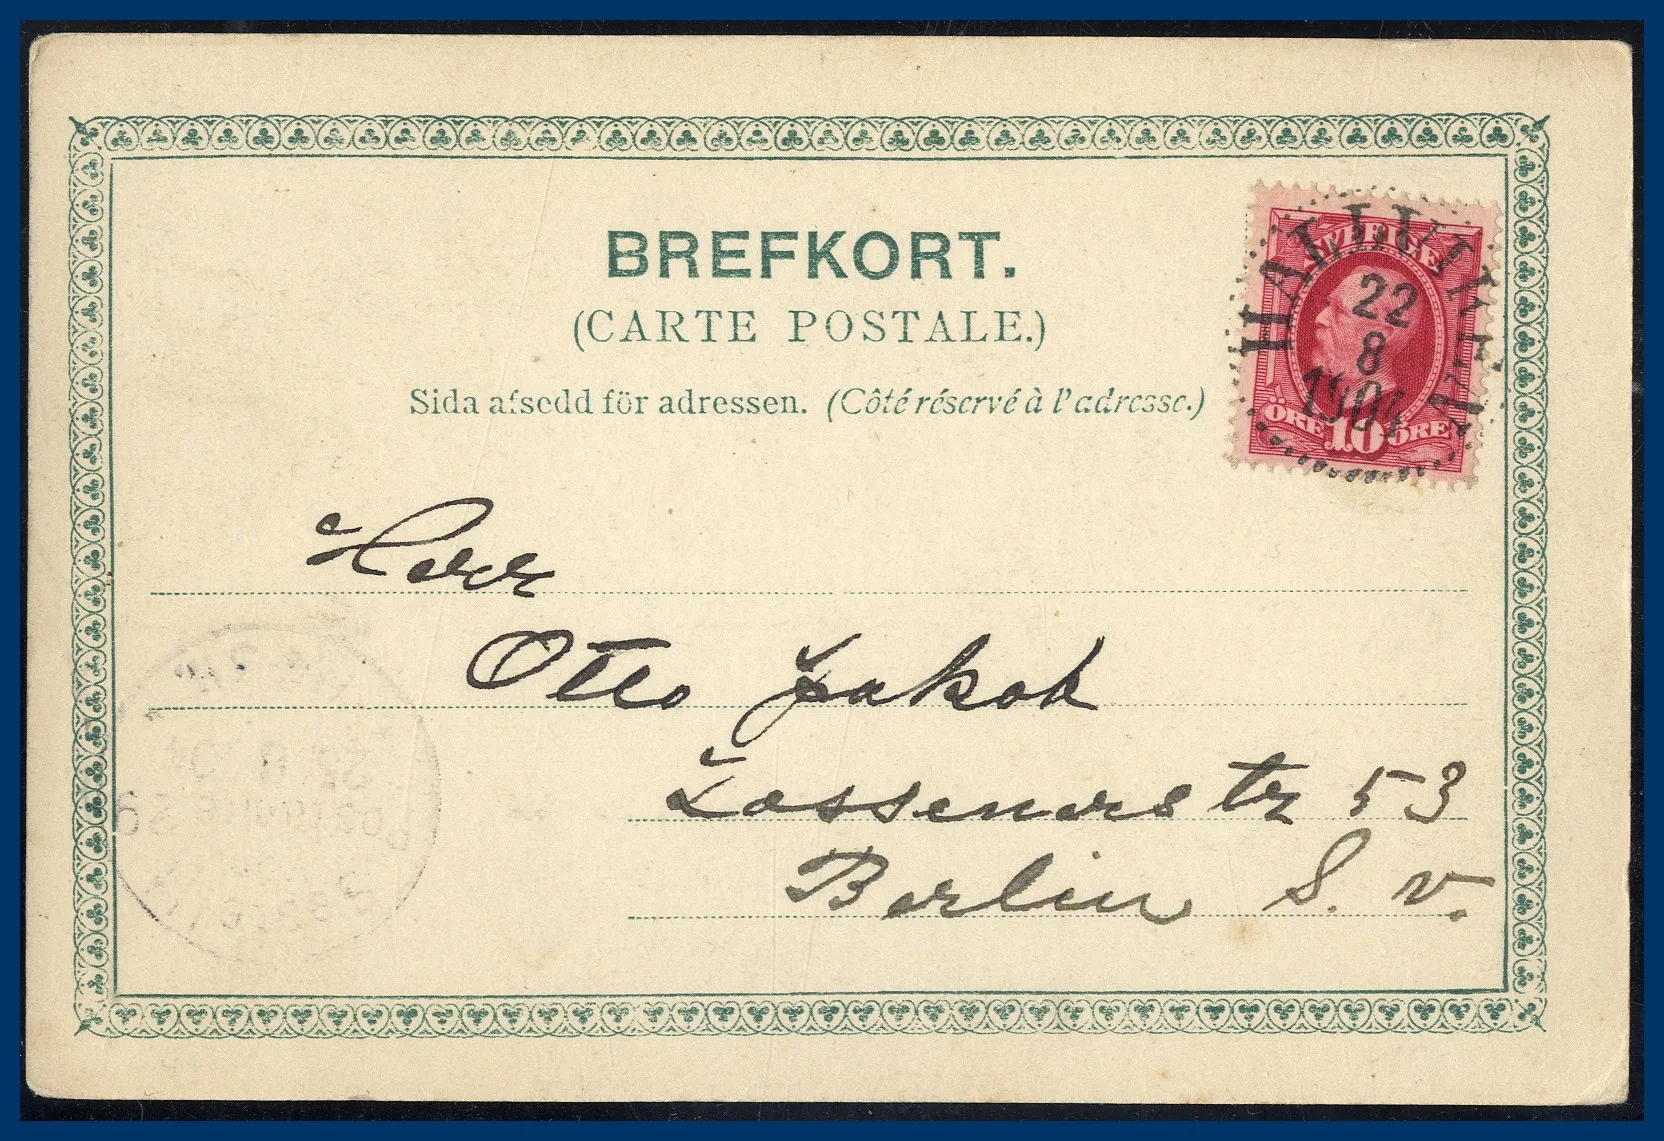 BREFKORT.
(CARTE POSTALE.)
Sida afsedd för adressen. (Côté réservé à l'adresse.)
SVERIGE
ÖRE 10 ÖRE
22
8
1904
Herr
Otto Jakob
Zossenerstr 53
Berlin S. W.